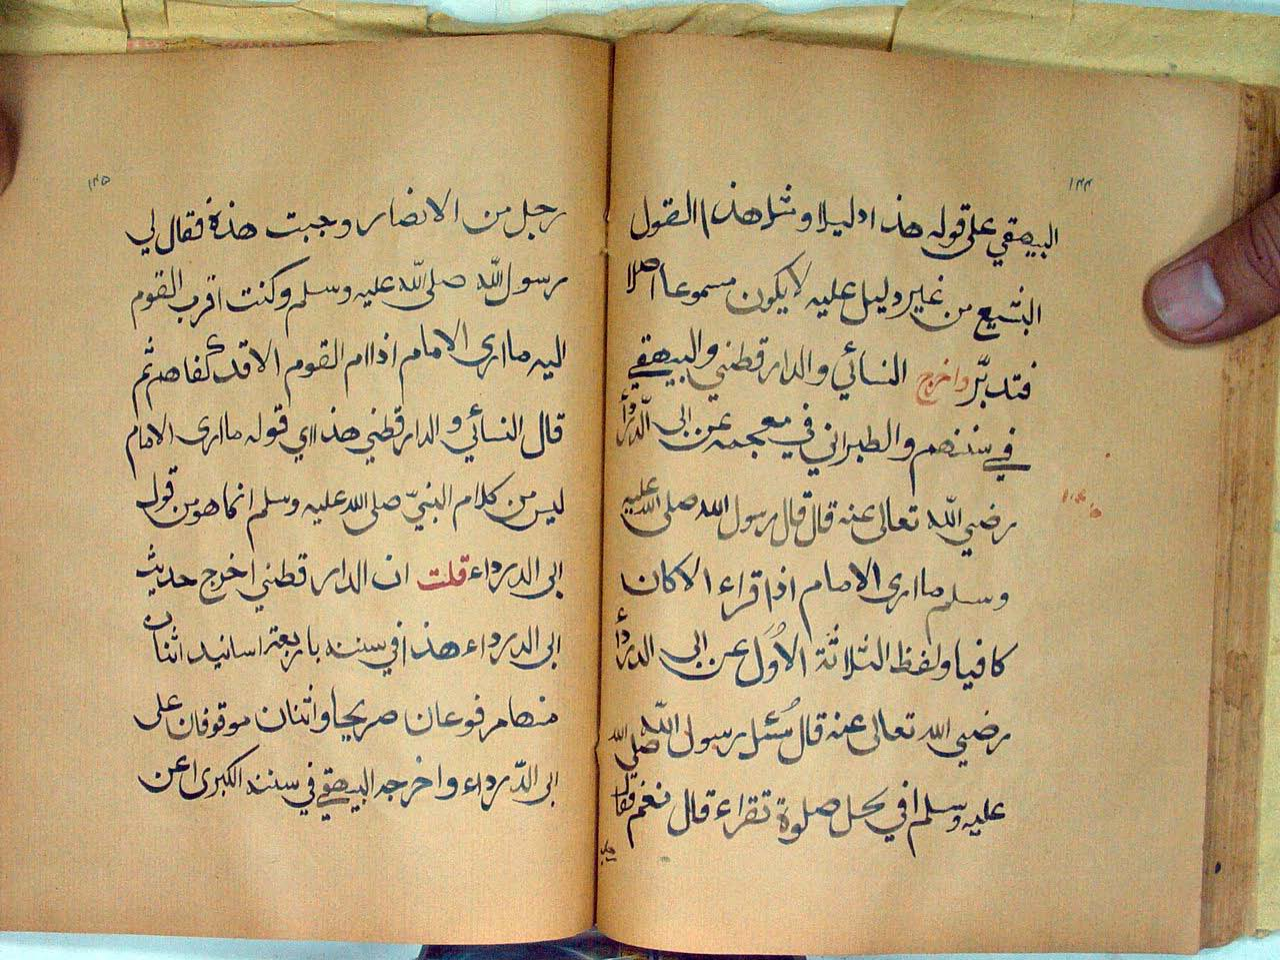 ١٤٤
البيهقي على قوله هذا دليلا ومثل هذا القول
البشيع من غير دليل عليه لا يكون مسموعا اصلا
فتدبّر واخرج النسائي والدارقطني والبيهقي
في سننهم والطبراني في معجمه عن ابى الدرداء
رضي الله تعالى عنه قال قال رسول الله صلى الله عليه
وسلم ما ارى الامام اذا قراء الا كان
كافيا ولفظ الثلاثة الاُوَل عن ابى الدرداء
رضي الله تعالى عنه قال سُئل رسول الله صلى الله
عليه وسلم افي كل صلوة تقراء قال نعم فقال
رجل
١٤٥
رجل من الانصار وجبت هذه فقال لي
رسول الله صلى الله عليه وسلم وكنت اقرب القوم
اليه ما ارى الامام اذا ام القوم الا قد كفاهم ثم
قال النسائي والدارقطني هذا اي قوله ما ارى الامام
ليس من كلام النبيّ صلى الله عليه وسلم انما هو من قول
ابى الدرداء قلت ان الدارقطني اخرج حديث
ابى الدرداء هذا في سننه باربعة اسانيد اثنان
منها مرفوعان صريحا واثنان موقوفان على
ابى الدّرداء واخرجه البيهقي في سننه الكبرى عن